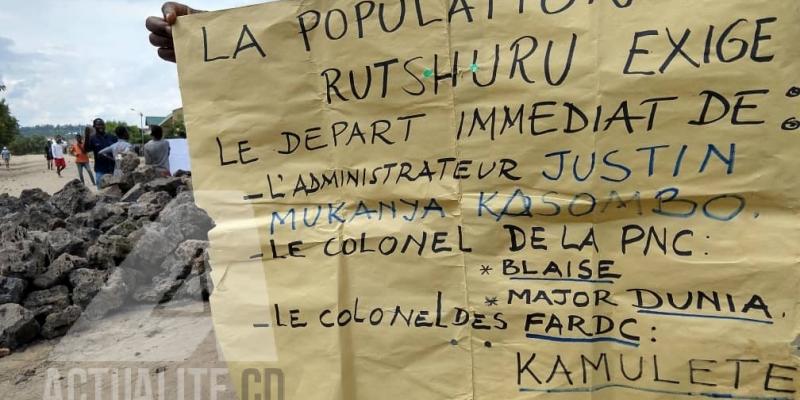 LA POPULATION
RUTSHURU EXIGE
LE DEPART IMMEDIAT DE :
- L'ADMINISTRATEUR JUSTIN
MUKANYA KASOMBO.
- LE COLONEL DE LA PNC :
* BLAISE
* MAJOR DUNIA.
- LE COLONEL DES FARDC :
KAMULETE
ACTUALITE.CD